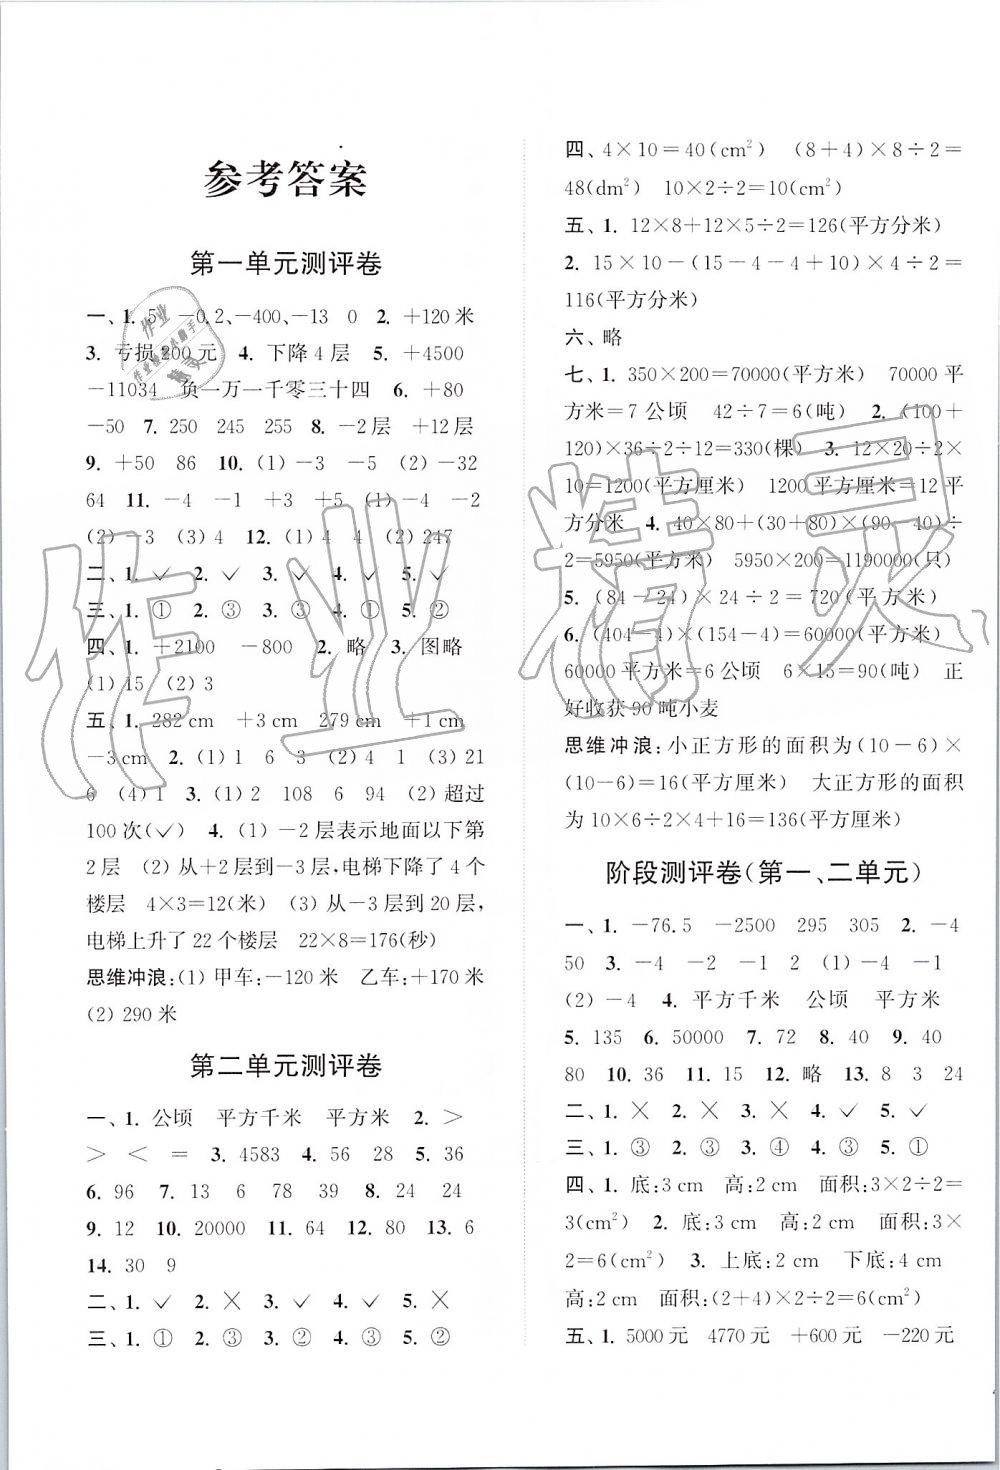 参考答案
第一单元测评卷
一、1. 5 -0.2、-400、-13 0 2. +120米
3. 亏损200元 4. 下降4层 5. +4500
-11034 负一万一千零三十四 6. +80
-50 7. 250 245 255 8. -2层 +12层
9. +50 86 10. (1)-3 -5 (2)-32
64 11. -4 -1 +3 +5 (1)-4 -2
(2)-3 (3)4 12. (1)4 4 (2)247
二、1. ✓ 2. ✓ 3. ✓ 4. ✓ 5. ✓
三、1. ① 2. ③ 3. ③ 4. ① 5. ②
四、1. +2100 -800 2. 略 3. 图略
(1)15 (2)3
五、1. 282 cm +3 cm 279 cm +1 cm
-3 cm 2. (1)1 6 3 (2)4 1 (3)21
6 (4)1 3. (1)2 108 6 94 (2)超过
100次(✓) 4. (1)-2层表示地面以下第
2层 (2)从+2层到-3层,电梯下降了4个
楼层 4×3=12(米) (3)从-3层到20层,
电梯上升了22个楼层 22×8=176(秒)
思维冲浪:(1)甲车:-120米 乙车:+170米
(2)290米
第二单元测评卷
一、1. 公顷 平方千米 平方米 2. >
> < = 3. 4583 4. 56 28 5. 36
6. 96 7. 13 6 78 39 8. 24 24
9. 12 10. 20000 11. 64 12. 80 13. 6
14. 30 9
二、1. ✓ 2. × 3. ✓ 4. ✓ 5. ×
三、1. ① 2. ③ 3. ③ 4. ③ 5. ②
四、4×10=40(cm²) (8+4)×8÷2=
48(dm²) 10×2÷2=10(cm²)
五、1. 12×8+12×5÷2=126(平方分米)
2. 15×10-(15-4-4+10)×4÷2=
116(平方分米)
六、略
七、1. 350×200=70000(平方米) 70000平
方米=7公顷 42÷7=6(吨) 2. (100+
120)×36÷2÷12=330(棵) 3. 12×20÷2×
10=1200(平方厘米) 1200平方厘米=12平
方分米 4. 40×80+(30+80)×(90-40)÷
2=5950(平方米) 5950×200=1190000(只)
5. (84-24)×24÷2=720(平方米)
6. (404-4)×(154-4)=60000(平方米)
60000平方米=6公顷 6×15=90(吨) 正
好收获90吨小麦
思维冲浪:小正方形的面积为(10-6)×
(10-6)=16(平方厘米) 大正方形的面积
为10×6÷2×4+16=136(平方厘米)
阶段测评卷(第一、二单元)
一、1. -76.5 -2500 295 305 2. -4
50 3. -4 -2 -1 2 (1)-4 -1
(2)-4 4. 平方千米 公顷 平方米
5. 135 6. 50000 7. 72 8. 40 9. 40
80 10. 36 11. 15 12. 略 13. 8 3 24
二、1. × 2. × 3. × 4. ✓ 5. ✓
三、1. ③ 2. ③ 3. ④ 4. ③ 5. ①
四、1. 底:3 cm 高:2 cm 面积:3×2÷2=
3(cm²) 2. 底:3 cm 高:2 cm 面积:3×
2=6(cm²) 3. 上底:2 cm 下底:4 cm
高:2 cm 面积:(2+4)×2÷2=6(cm²)
五、1. 5000元 4770元 +600元 -220元
作业精灵